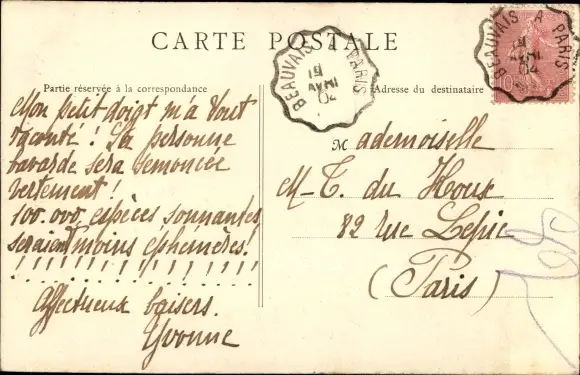 CARTE POSTALE
Partie réservée à la correspondance
Adresse du destinataire
BEAUVAIS A PARIS
BEAUVAIS A PARIS
10
Mon petit doigt m'a tout
raconté ! La personne
bavarde sera semoncée
vertement !
100.000, espèces sonnantes,
seraient moins éphémères !
! ! ! ! ! ! ! ! ! ! ! ! ! ! !
Affectueux baisers.
Yvonne
Mademoiselle
M-T. du Houx
82 rue Lepic
(Paris)